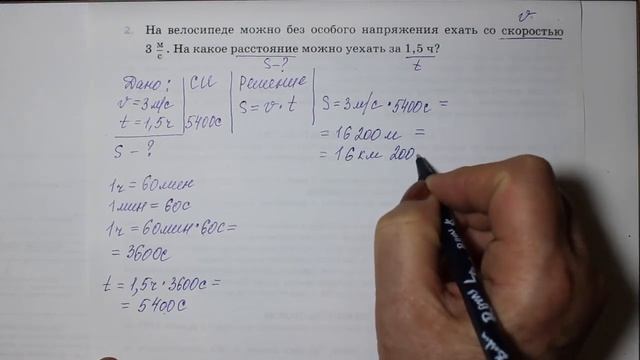 2. На велосипеде можно без особого напряжения ехать со скоростью
3 м/с. На какое расстояние можно уехать за 1,5 ч?
v
S-?
t
Дано:
v = 3 м/с
t = 1,5 ч
S - ?
СИ
5400с
Решение
S = v · t
S = 3 м/с · 5400с =
= 16 200 м =
= 16 км 200
1ч = 60мин
1мин = 60с
1ч = 60мин · 60с =
= 3600с
t = 1,5ч · 3600с =
= 5400с